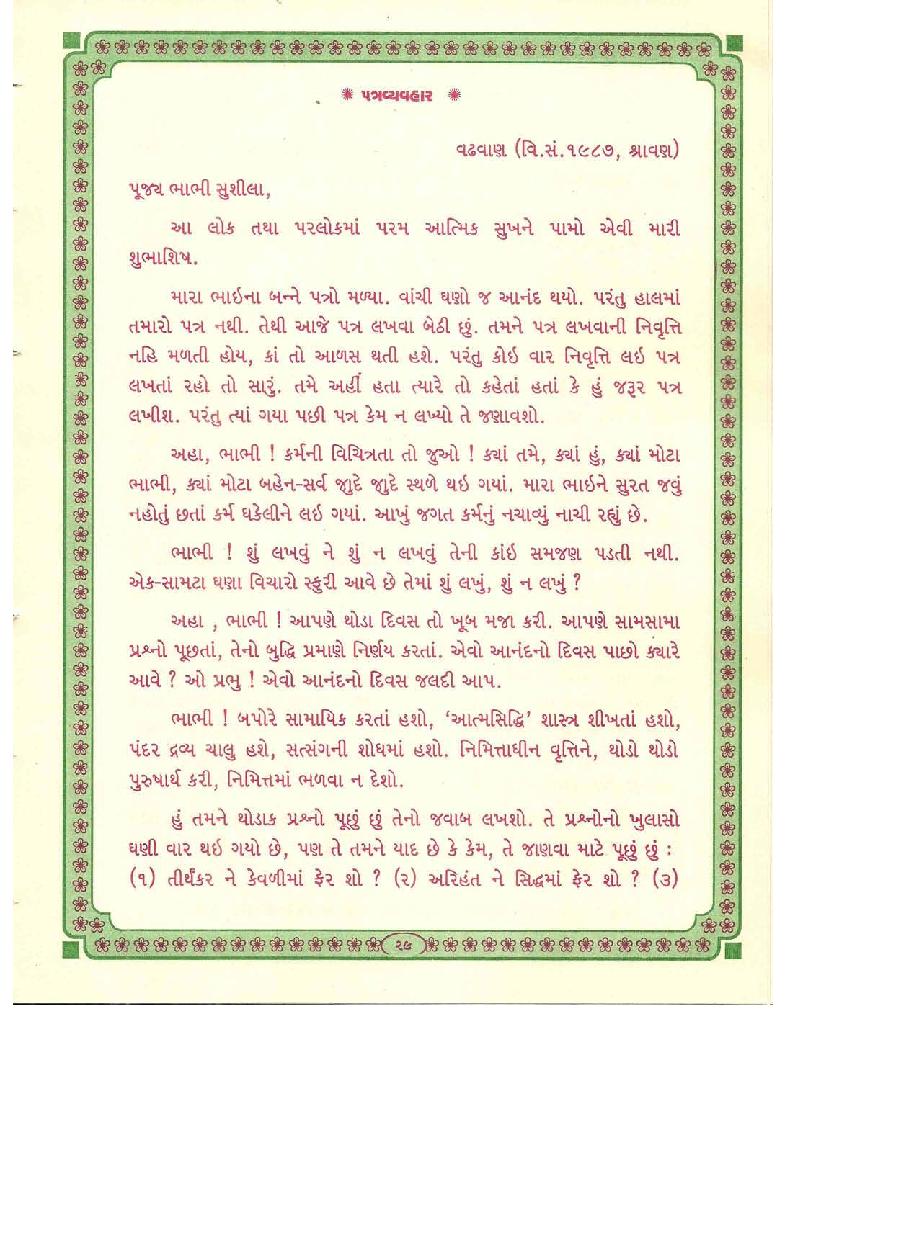 ✺ પત્રવ્યવહાર ✺
વઢવાણ (વિ.સં.૧૯૮૭, શ્રાવણ)
પૂજ્ય ભાભી સુશીલા,
આ લોક તથા પરલોકમાં પરમ આત્મિક સુખને પામો એવી મારી
શુભાશિષ.
મારા ભાઇના બન્ને પત્રો મળ્યા. વાંચી ઘણો જ આનંદ થયો. પરંતુ હાલમાં
તમારો પત્ર નથી. તેથી આજે પત્ર લખવા બેઠી છું. તમને પત્ર લખવાની નિવૃત્તિ
નહિ મળતી હોય, કાં તો આળસ થતી હશે. પરંતુ કોઇ વાર નિવૃત્તિ લઇ પત્ર
લખતાં રહો તો સારું. તમે અહીં હતા ત્યારે તો કહેતાં હતાં કે હું જરૂર પત્ર
લખીશ. પરંતુ ત્યાં ગયા પછી પત્ર કેમ ન લખ્યો તે જણાવશો.
અહા, ભાભી ! કર્મની વિચિત્રતા તો જુઓ ! ક્યાં તમે, ક્યાં હું, ક્યાં મોટા
ભાભી, ક્યાં મોટા બહેન-સર્વ જાુદે જાુદે સ્થળે થઇ ગયાં. મારા ભાઇને સુરત જવું
નહોતું છતાં કર્મ ધકેલીને લઇ ગયાં. આખું જગત કર્મનું નચાવ્યું નાચી રહ્યું છે.
ભાભી ! શું લખવું ને શું ન લખવું તેની કાંઇ સમજણ પડતી નથી.
એક-સામટા ઘણા વિચારો સ્ફુરી આવે છે તેમાં શું લખું, શું ન લખું ?
અહા , ભાભી ! આપણે થોડા દિવસ તો ખૂબ મજા કરી. આપણે સામસામા
પ્રશ્નો પૂછતાં, તેનો બુદ્ધિ પ્રમાણે નિર્ણય કરતાં. એવો આનંદનો દિવસ પાછો ક્યારે
આવે ? ઓ પ્રભુ ! એવો આનંદનો દિવસ જલદી આપ.
ભાભી ! બપોરે સામાયિક કરતાં હશો, ‘આત્મસિદ્ધિ’ શાસ્ત્ર શીખતાં હશો,
પંદર દ્રવ્ય ચાલુ હશે, સત્સંગની શોધમાં હશો. નિમિત્તાધીન વૃત્તિને, થોડો થોડો
પુરુષાર્થ કરી, નિમિત્તમાં ભળવા ન દેશો.
હું તમને થોડાક પ્રશ્નો પૂછું છું તેનો જવાબ લખશો. તે પ્રશ્નોનો ખુલાસો
ઘણી વાર થઇ ગયો છે, પણ તે તમને યાદ છે કે કેમ, તે જાણવા માટે પૂછું છું :
(૧) તીર્થંકર ને કેવળીમાં ફેર શો ? (૨) અરિહંત ને સિદ્ધમાં ફેર શો ? (૩)
૨૯